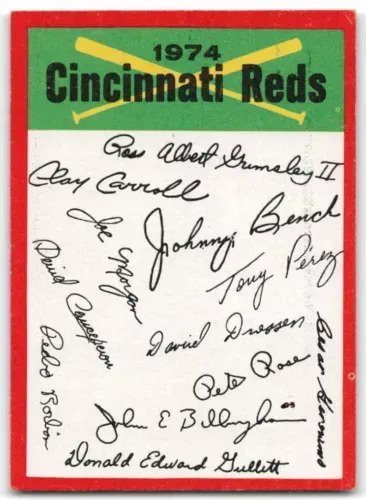 1974
Cincinnati Reds
Ross Albert Grimsley II
Clay Carroll
Johnny Bench
Joe Morgan
Tony Pérez
David Concepcion
David Driessen
Pete Rose
Pedro Borbon
Cesar Geronimo
John E Billingham
Donald Edward Gullett